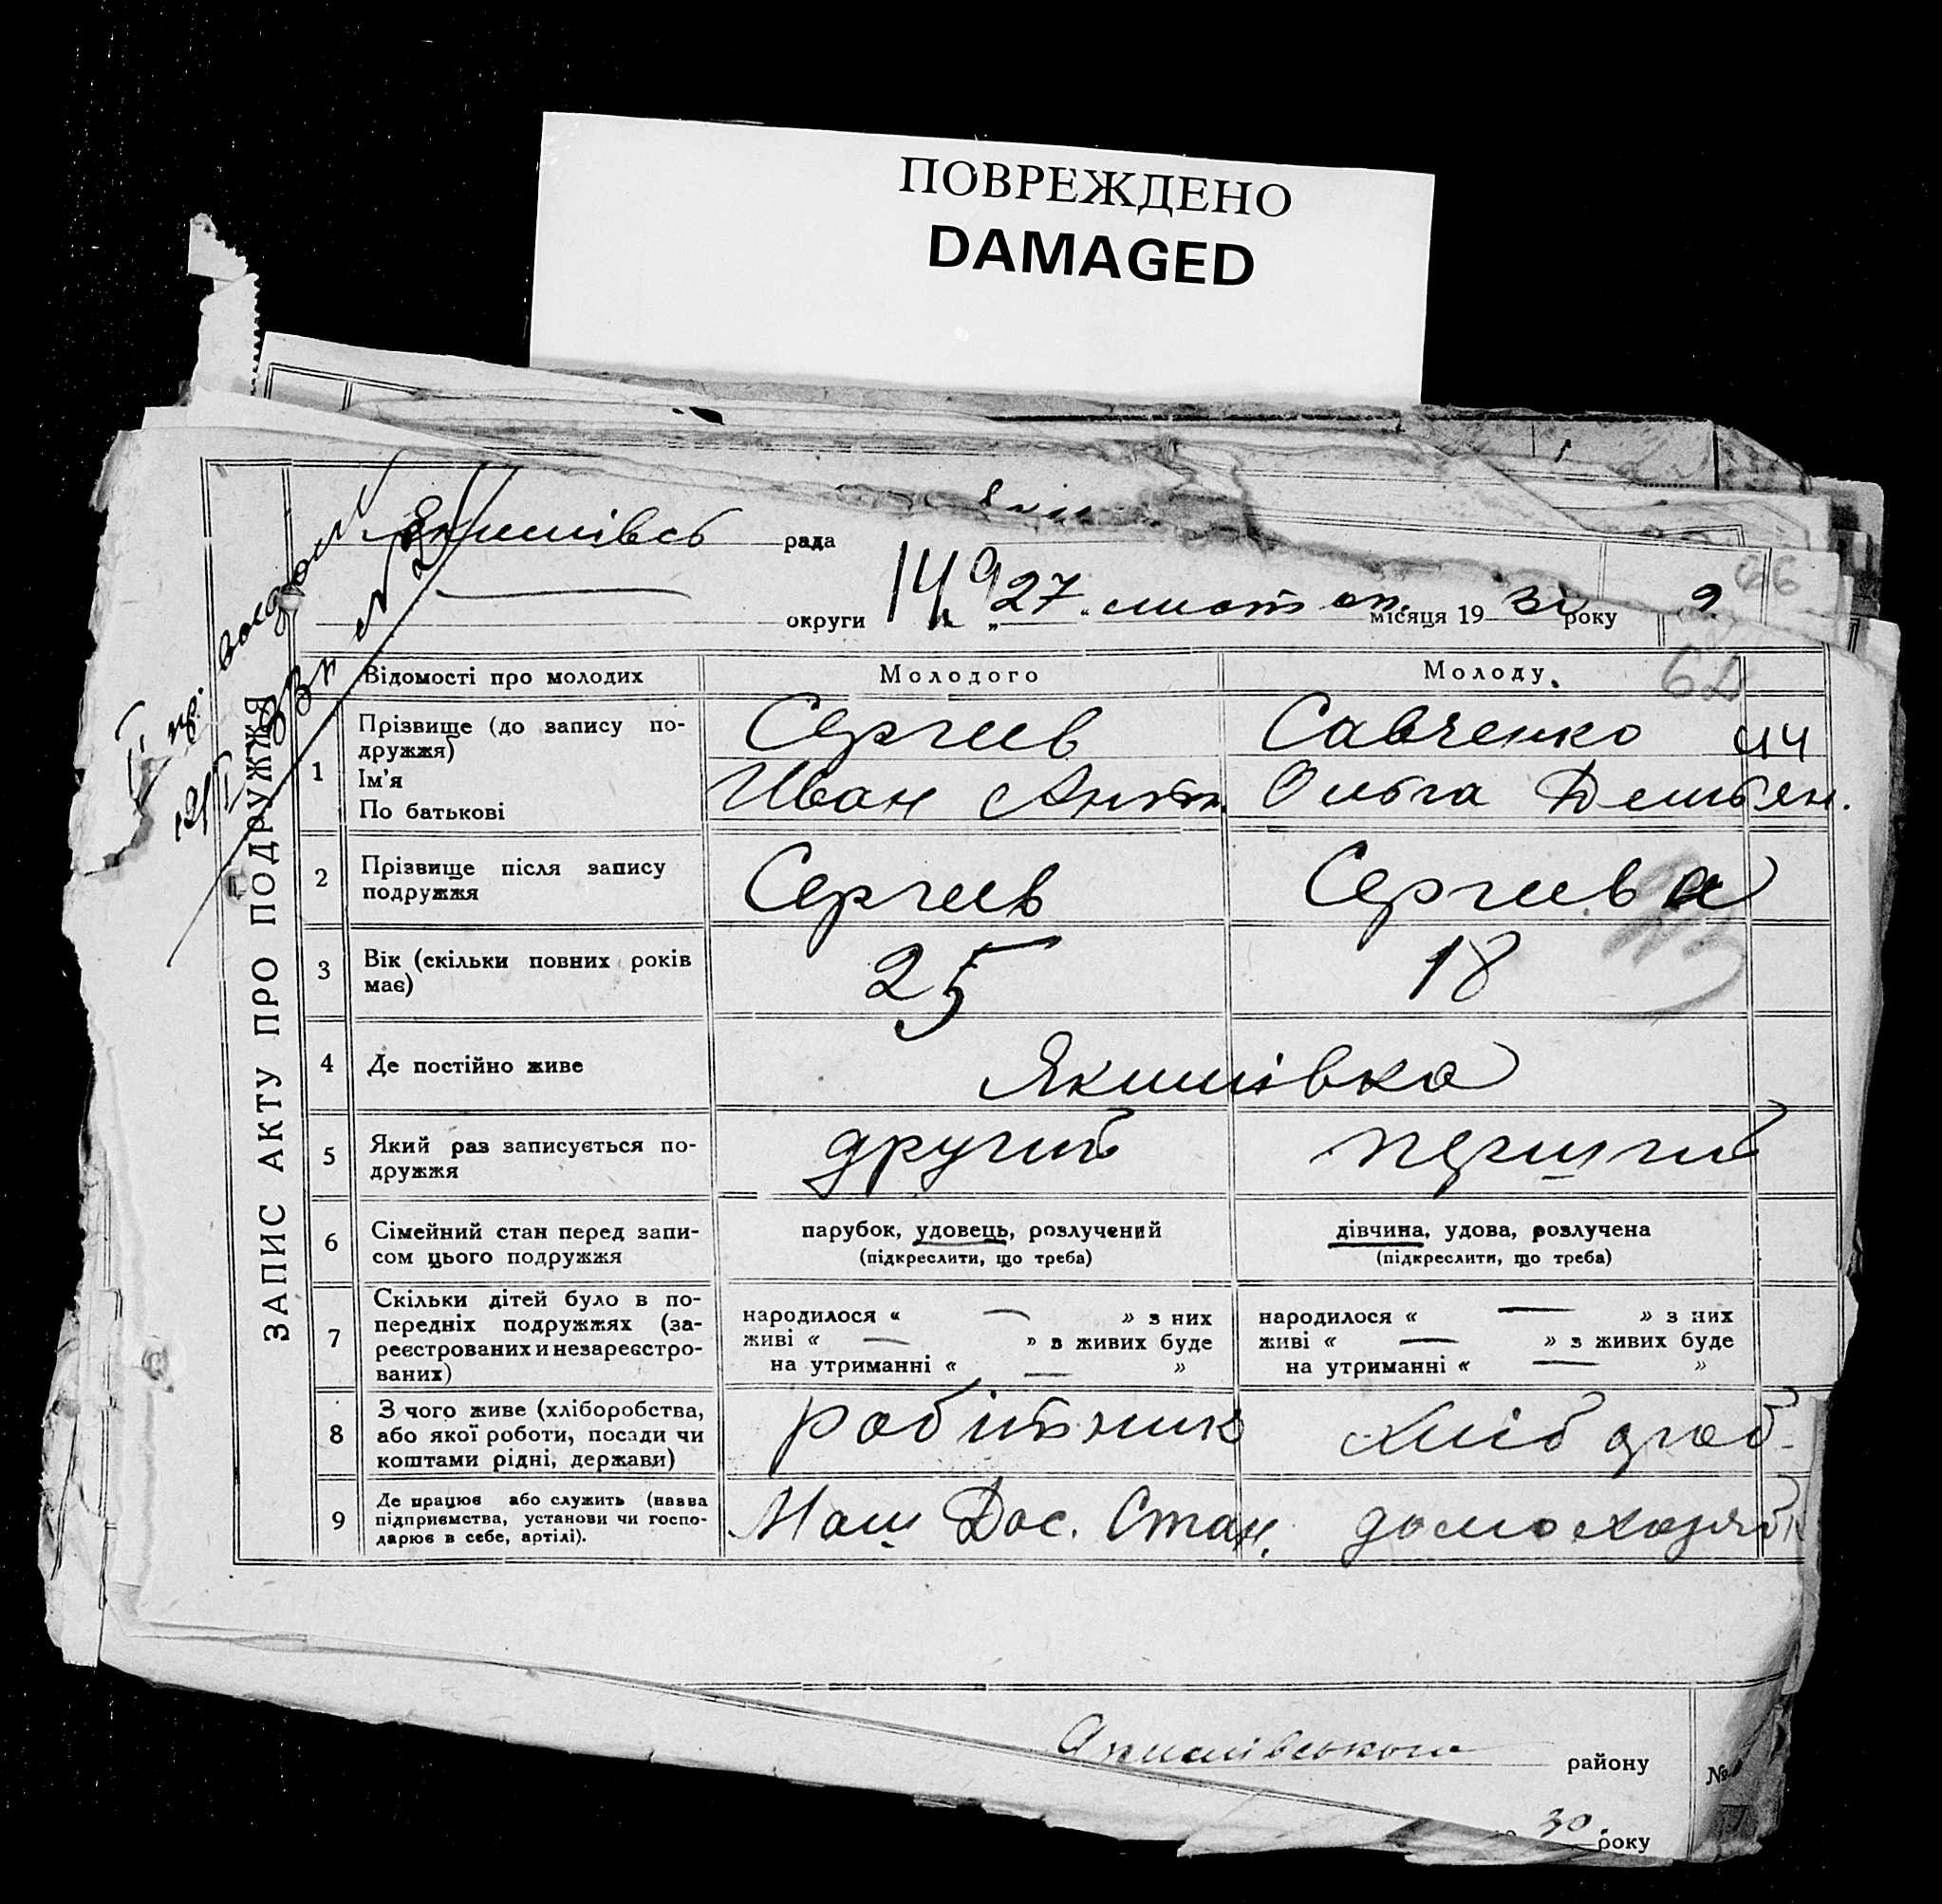 ПОВРЕЖДЕНО
DAMAGED
рада
округи 149 27 місяця 19 року 9
66
62
ЗАПИС АКТУ ПРО ПОДРУЖЖЯ
Відомості про молодих Молодого Молоду.
1 Прізвище (до запису по-
дружжя)
Ім'я
По батькові
Сергеев Савченко
Иван Антон. Ольга Демьян.
2 Прізвище після запису
подружжя
Сергеев Сергеева
3 Вік (скільки повних років
має)
25 18
4 Де постійно живе Якимівка
5 Який раз записується по-
дружжя
другий перший
6 Сімейний стан перед запи-
сом цього подружжя
парубок, удовець, розлучений
(підкреслити, що треба)
дівчина, удова, розлучена
(підкреслити, що треба)
7 Скільки дітей було в по-
передніх подружжях (за-
реєстрованих и незареєстро-
ваних)
народилося « — » з них
живі « — » з живих буде
на утриманні « — »
народилося « — » з них
живі « — » з живих буде
на утриманні « — »
8 З чого живе (хліборобства,
або якої роботи, посади чи
коштами рідні, держави)
робітник хлібороб
9 Де працює або служить (назва
підприємства, установи чи госпо-
дарює в себе, артілі).
Маш Дос. Стан.
Якимівського району №
30 року